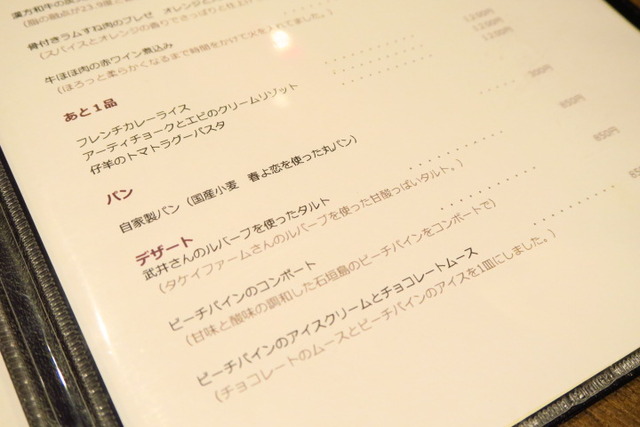 漢方和牛の
(脂の融点が23.9度と
骨付きラムすね肉のブレゼ オレンジと
(スパイスとオレンジの香りでさっぱりと仕上
牛ほほ肉の赤ワイン煮込み
(ほろっと柔らかくなるまで時間をかけて火を入れてました。)
1200円
1200円
あと1品
フレンチカレーライス
アーティチョークとエビのクリームリゾット
仔羊のトマトラグーパスタ
パン
自家製パン (国産小麦 春よ恋を使った丸パン)
300円
デザート
武井さんのルバーブを使ったタルト
850円
(タケイファームさんのルバーブを使った甘酸っぱいタルト。)
ピーチパインのコンポート
850円
(甘味と酸味の調和した石垣島のピーチパインをコンポートで)
ピーチパインのアイスクリームとチョコレートムース
(チョコレートのムースとピーチパインのアイスを1皿にしました。)